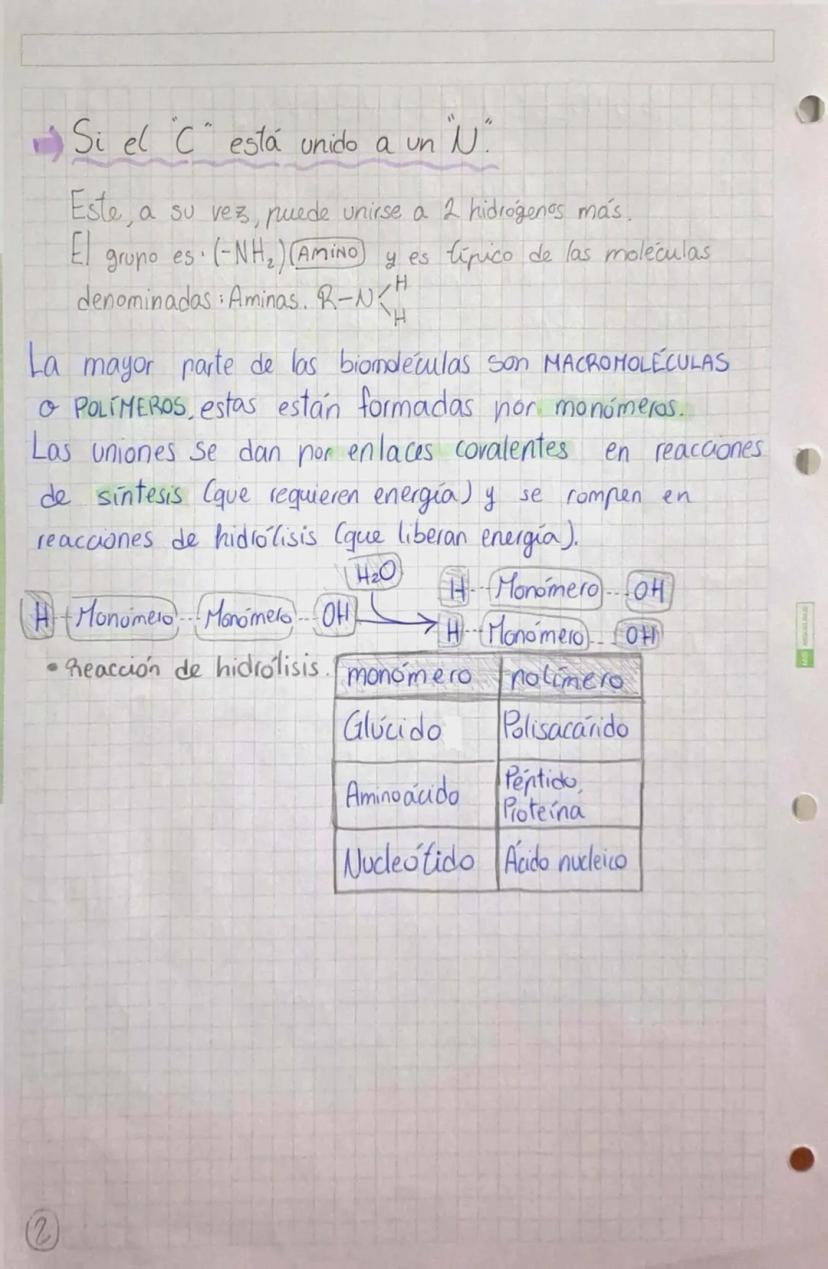 Si el "C" está unido a un "N".
Este, a su vez, puede unirse a 2 hidrógenos más.
El grupo es · (-NH₂) (AMINO) y es típico de las moléculas
denominadas : Aminas. R-N< H
H
La mayor parte de las biomoléculas son MACROMOLÉCULAS
o POLÍMEROS, estas están formadas por monómeros.
Las uniones se dan por enlaces covalentes en reacciones
de síntesis (que requieren energía) y se rompen en
reacciones de hidrólisis (que liberan energía).
H₂O
H - Monómero -- Monómero -- OH
H -- Monómero -- OH
H -- Monómero -- OH
• Reacción de hidrólisis.
monómero polímero
Glúcido Polisacárido
Aminoácido Péptido,
Proteína
Nucleótido Ácido nucleico
2